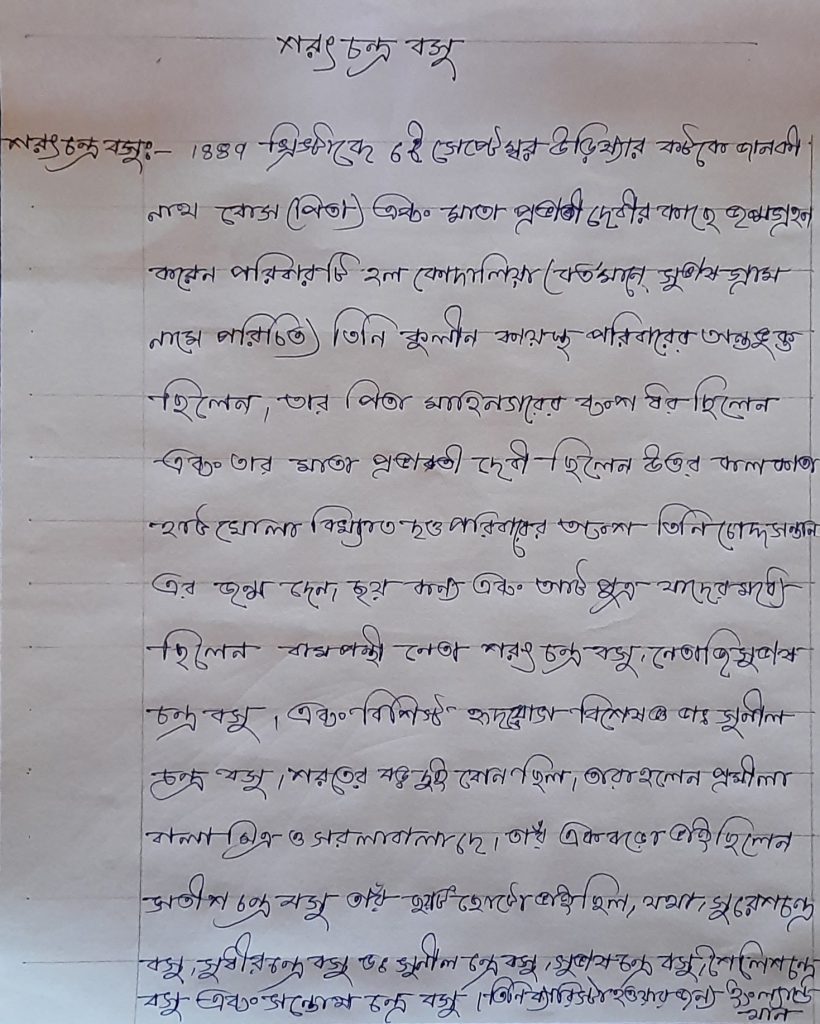 শরৎ চন্দ্র বসু
শরৎ চন্দ্র বসুঃ- 1889 খ্রিস্টাব্দে ৬ই সেপ্টেম্বর উড়িষ্যার কটকে জানকী
নাথ বোস (পিতা) এবং মাতা প্রভাবতী দেবীর কাছে জন্মগ্রহন
করেন পরিবারটি হল কোদালিয়া (বর্তমানে সুভাষ গ্রাম
নামে পরিচিত) তিনি কুলীন কায়স্থ পরিবারের অন্তভুক্ত
ছিলেন, তার পিতা মাহিনগরের বংশ ধর ছিলেন
এবং তার মাতা প্রভাবতী দেবী ছিলেন উত্তর কলকাতা
হাটখোলা বিখ্যাত দত্ত পরিবারের অংশ তিনি চোদ্দসন্তান
এর জন্ম দেন, ছয় কন্যা এবং আট পুত্র যাদের মধ্যে
ছিলেন বামপন্থী নেতা শরৎ চন্দ্র বসু, নেতাজি সুভাষ
চন্দ্র বসু, এবং বিশিস্ট হৃদরোগ বিশেষজ্ঞ ডঃ সুনীল
চন্দ্র বসু, শরতের বড় দুই বোন ছিল, তারা হলেন প্রমীলা
বালা মিত্র ও সরলাবালা দে, তাঁর এক বড়ো ভাই ছিলেন
সতীশ চন্দ্র বসু তাঁর ছয়টি ছোটো ভাই ছিল, যথা, সুরেশ চন্দ্র
বসু, সুধীর চন্দ্র বসু ডঃ সুনীল চন্দ্র বসু, সুভাষ চন্দ্র বসু, শৈলেশ চন্দ্র
বসু এবং সন্তোষ চন্দ্র বসু, তিনি ব্যারিস্টার হওয়ার জন্য ইংল্যান্ডে
যান